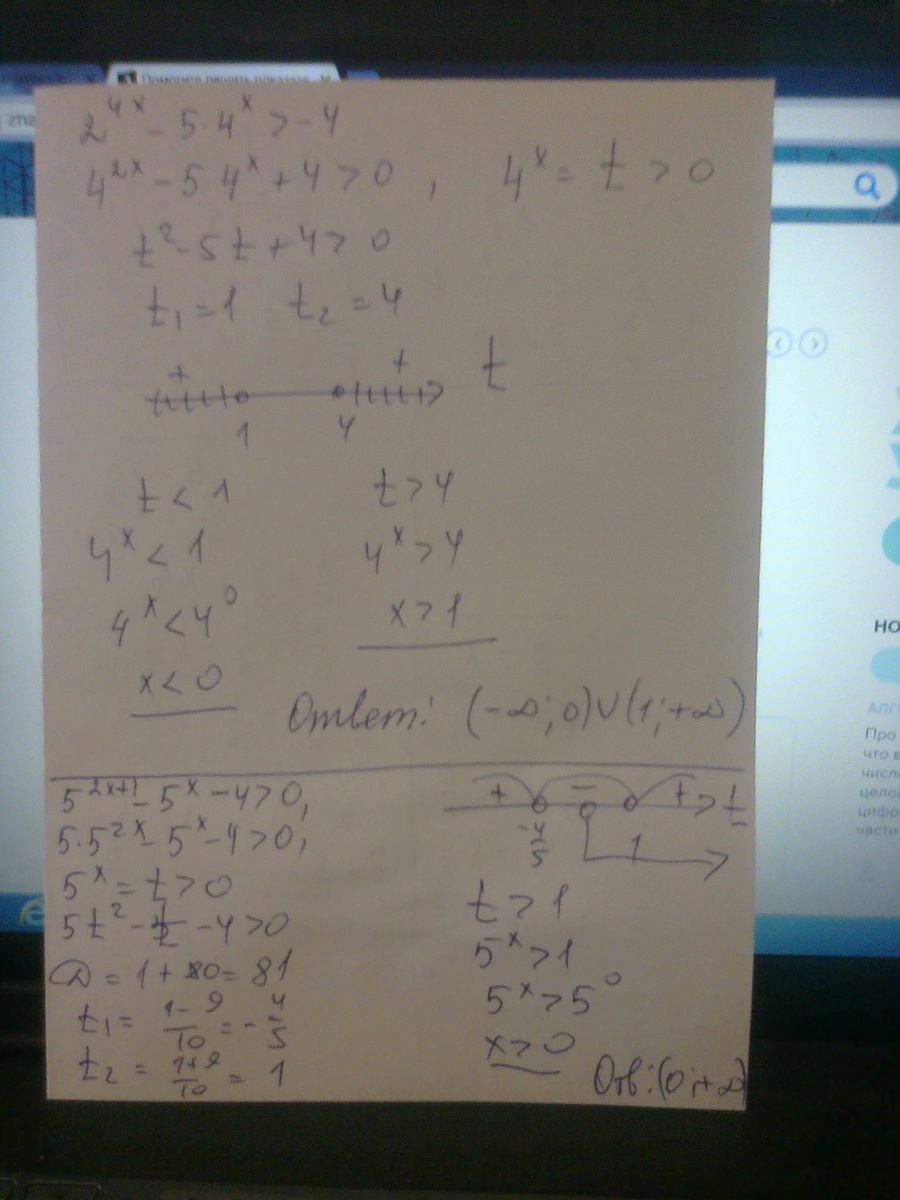 Помогите решить показате
zna
2^{4x} - 5·4^x > -4
4^{2x} - 5·4^x + 4 > 0 , 4^x = t > 0
t² - 5t + 4 > 0
t₁ = 1 t₂ = 4
+ + t
1 4
t < 1 t > 4
4^x < 1 4^x > 4
4^x < 4^0 x > 1
x < 0
Ответ: (-∞; 0)∪(1; +∞)
5^{2x+1} - 5^x - 4 > 0,
5·5^{2x} - 5^x - 4 > 0,
5^x = t > 0
5t² - t - 4 > 0
D = 1 + 80 = 81
t₁ = (1-9)/10 = -4/5
t₂ = (1+9)/10 = 1
+ - + t
-4/5 1
t > 1
5^x > 1
5^x > 5^0
x > 0
Отв: (0; +∞)
НО
АЛГ
Про
что в
числ
цело
цифр
части